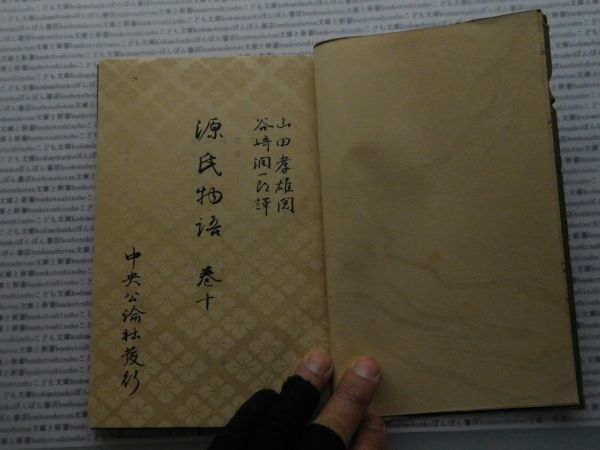 山田孝雄閲
谷崎潤一郎譯
源氏物語 巻十
中央公論社發行